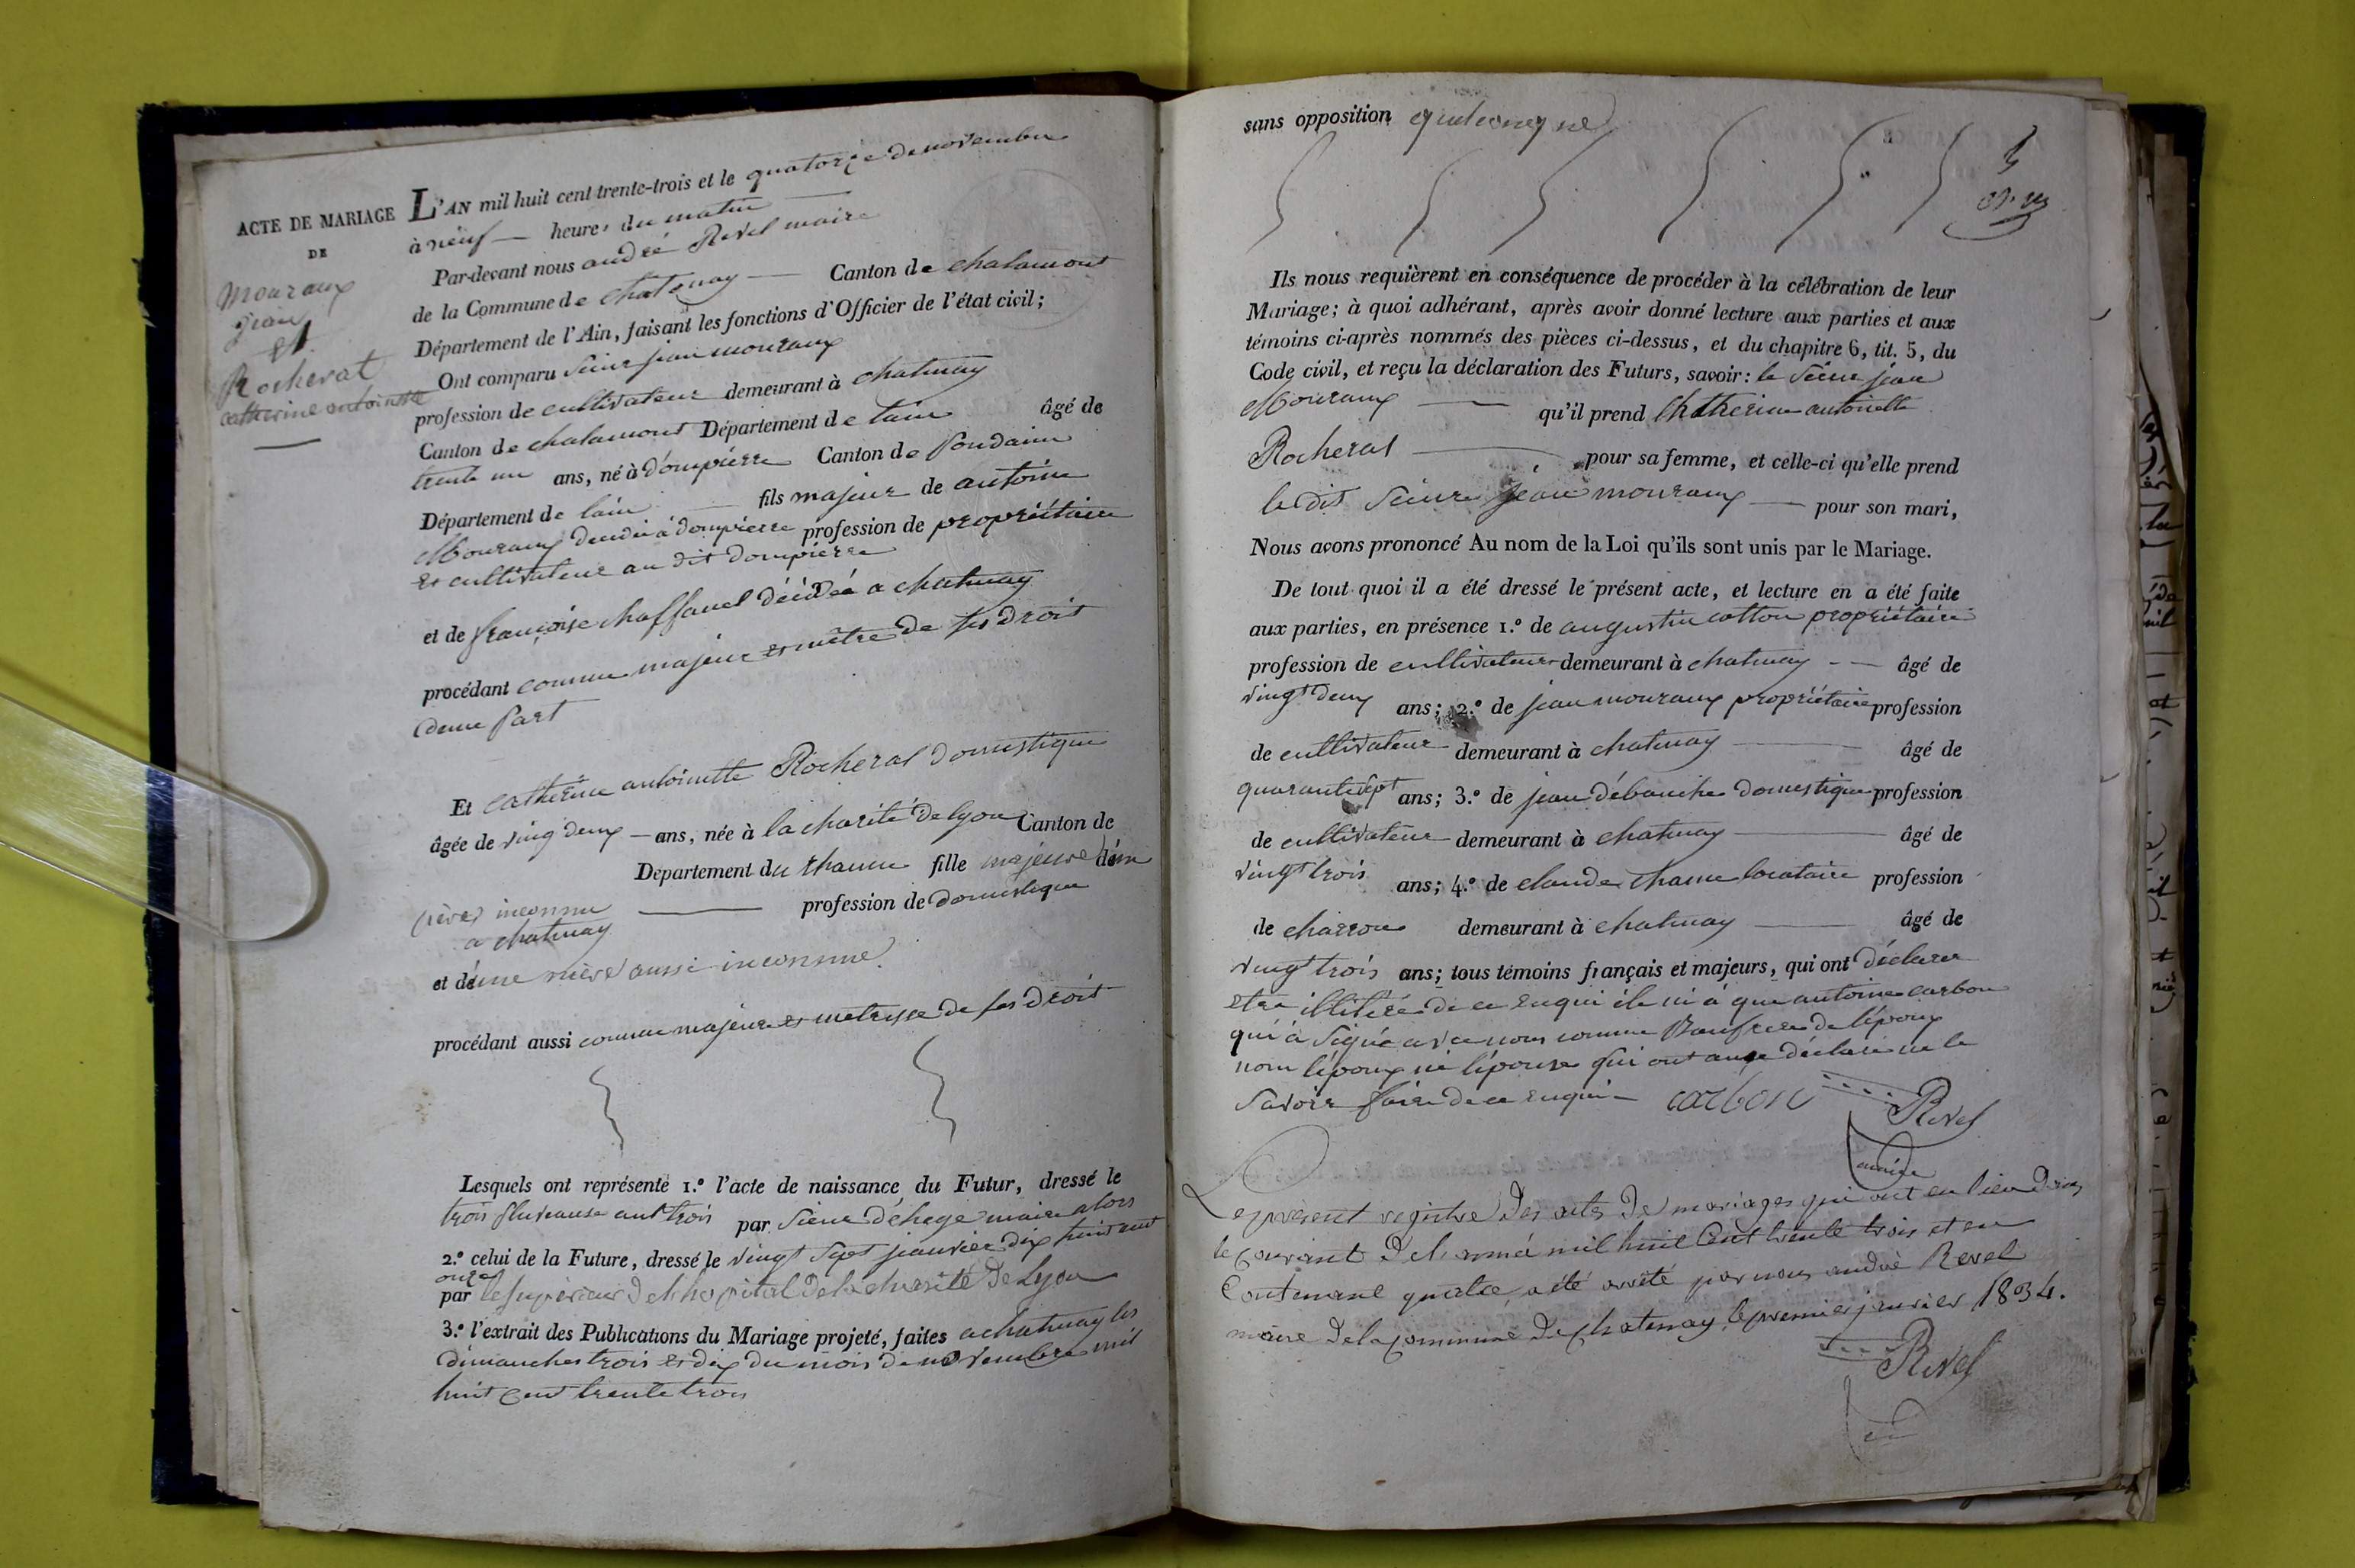 ACTE DE MARIAGE
DE
Mouraux
jean
et
Rocherat
catherine antoinette
L'AN mil huit cent trente-trois et le quatorze de novembre
à neuf heures du matin
Par-devant nous andré Revel maire
de la Commune de chatenay Canton de chalamont
Département de l'Ain, faisant les fonctions d'Officier de l'état civil;
Ont comparu Sieur jean mouraux
profession de cultivateur demeurant à chatenay
Canton de chalamont Département de lain âgé de
trente un ans, né à dompierre Canton de pondain
Département de lain fils majeur de antoine
Mouraux décédé à dompierre profession de propriétaire
et cultivateur au dit dompierre
et de françoise chaffanel décédée a chatenay
procédant comme majeur et mêtre de ses droit
dune part
Et catherine antoinette Rocherat domestique
âgée de ving deux ans, née à la charité de lyon Canton de
Département du rhaune fille majeure d'un
père inconnu profession de domestique
a chatenay
et de une mère aussi inconnue
procédant aussi comme majeure et metresse de ses droit
Lesquels ont représenté 1.º l'acte de naissance du Futur, dressé le
trois pluviause ant trois par Sieur déhaye maire alors
2.º celui de la Future, dressé le vingt Sept janvier dix huit cent
onze
par le supérieur de l'hopital de la charité de Lyon
3.º l'extrait des Publications du Mariage projeté, faites a chatenay les
dimanches trois et dix du mois de novembre mil
huit cent trente trois
sans opposition quelconque
Ils nous requièrent en conséquence de procéder à la célébration de leur
Mariage; à quoi adhérant, après avoir donné lecture aux parties et aux
témoins ci-après nommés des pièces ci-dessus, et du chapitre 6, tit. 5, du
Code civil, et reçu la déclaration des Futurs, savoir: le Sieur jean
Mouraux qu'il prend Chatherine antoinette
Rocherat pour sa femme, et celle-ci qu'elle prend
le dit Sieur jean mouraux pour son mari,
Nous avons prononcé Au nom de la Loi qu'ils sont unis par le Mariage.
De tout quoi il a été dressé le présent acte, et lecture en a été faite
aux parties, en présence 1.º de augustin cotton propriétaire
profession de cultivateur demeurant à chatenay âgé de
vingt deux ans; 2.º de jean mouraux propriétaire profession
de cultivateur demeurant à chatenay âgé de
quarante sept ans; 3.º de jean débauche domestique profession
de cultivateur demeurant à chatenay âgé de
vingt trois ans; 4.º de claude chanu locataire profession
de charron demeurant à chatenay âgé de
vingt trois ans; tous témoins français et majeurs, qui ont déclarer
etre illitéré de ce enqui il ni à que antoine carbon
qui à signé avec nous comme Baufrere de lépoux
nom lépoux ni lépouse qui ont ausse déclaré ne le
savoir faire de ce enqui carbon Revel
maire
Le présent registre des actes de mariages qui ont eu lieu dans
le courant de l'année mil huit Cent trente trois et en
Contenant quatre a été arrêté par nous andré Revel
maire de la commune de chatenay le premier janvier 1834.
Revel